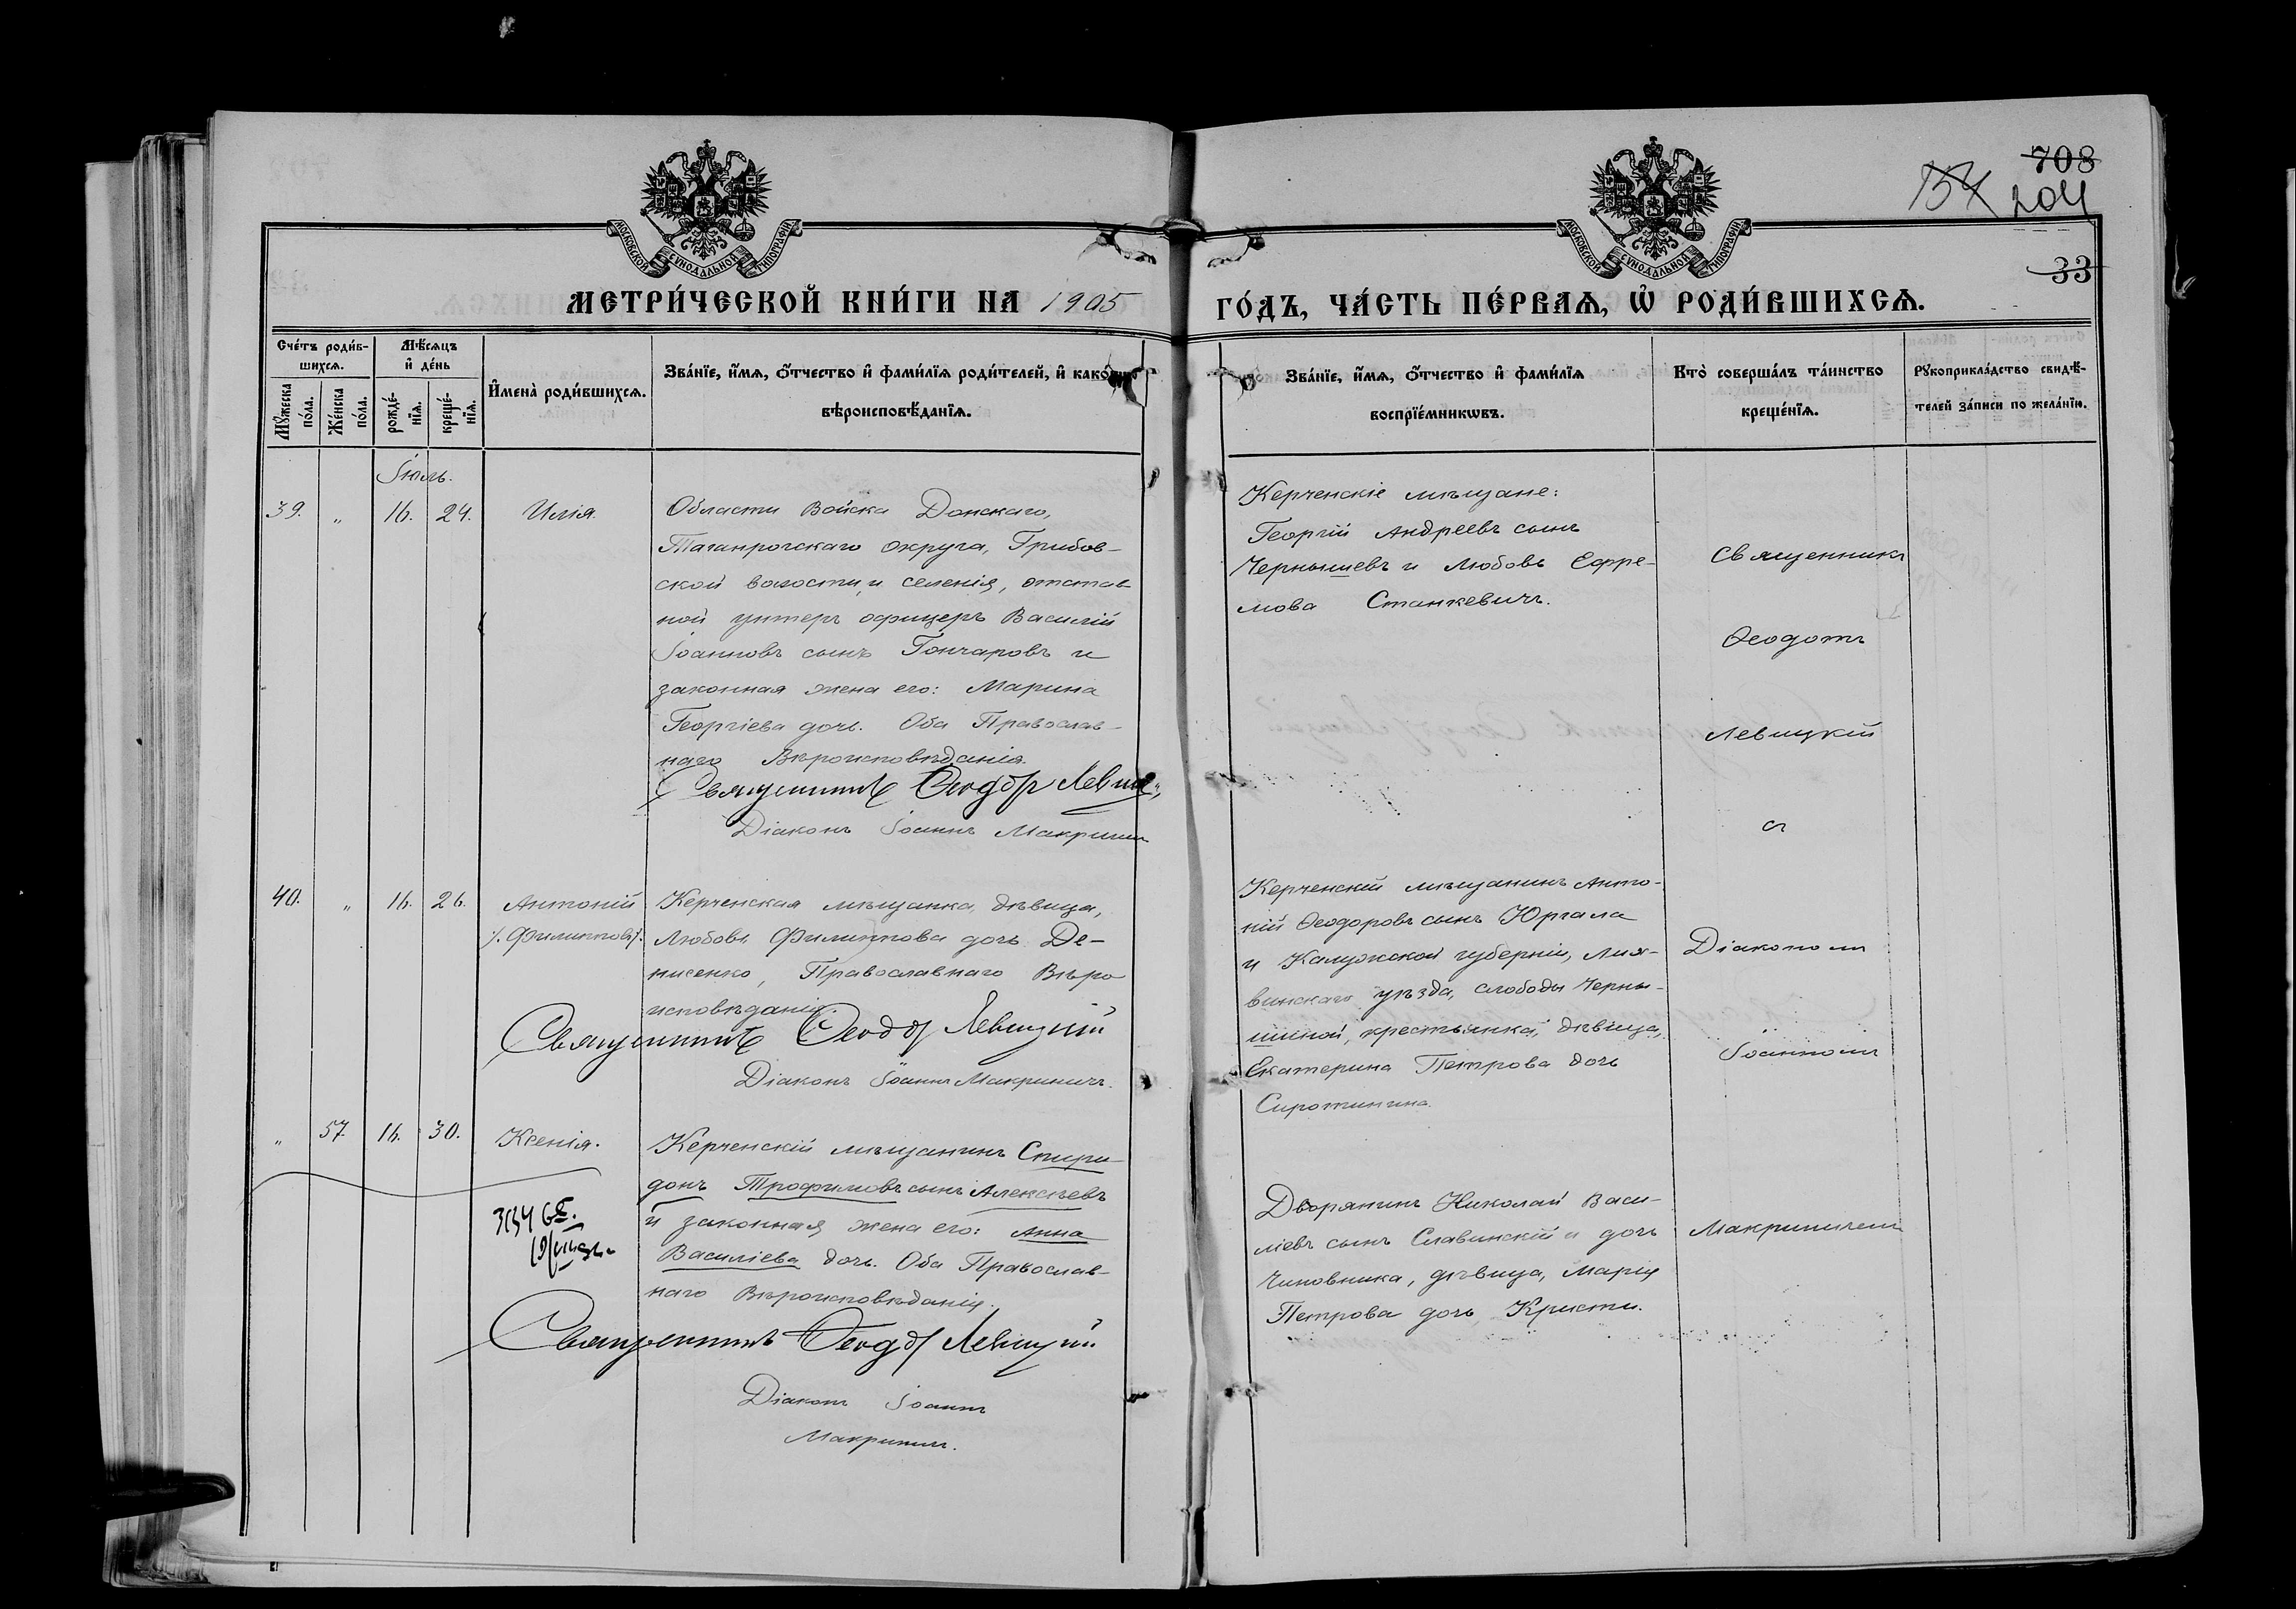 708
204
33
МОСКОВСКОЙ СѴНОДАЛЬНОЙ ТИПОГРАФІИ
МОСКОВСКОЙ СѴНОДАЛЬНОЙ ТИПОГРАФІИ
МЕТРИ́ЧЕСКОЙ КНИ́ГИ НА 1905
ГО́ДЪ, ЧА́СТЬ ПЕ́РВАѦ, Ѽ РОДИ́ВШИХСѦ.
Сче́тъ роди́в-
шихсѧ.
Мѣ́сѧцъ
и҆ де́нь
Мꙋ́жеска по́ла.
Же́нска по́ла.
рожде́-
нїѧ.
креще́-
нїѧ.
И҆мена̀ роди́вшихсѧ.
Зва́нїе, и҆́мѧ, ѻ҆́тчество и҆ фами́лїѧ роди́телей, и҆ како́вѡ
вѣроисповѣ́данїѧ.
Зва́нїе, и҆́мѧ, ѻ҆́тчество и҆ фами́лїѧ
воспрїе́мникѡвъ.
Кто̀ соверша́лъ та́инство
креще́нїѧ.
Рꙋкоприкла́дство свидѣ́-
телей за́писи по жела́нїю.
Іюль.
39. „ 16. 24. Илія.
Области Войска Донскаго,
Таганрогскаго округа, Грибов-
ской волости, и селенія, отстав
ной унтеръ офицеръ Василій
Іоанновъ сынъ Гончаровъ и
законная жена его: Марина
Георгіева дочь. Оба Православ-
наго Вѣроисповѣданія.
Священникъ Ѳеодотъ Левиц
Діаконъ Іоаннъ Макринич
Керченскіе мѣщане:
Георгій Андреевъ сынъ
Чернышевъ и Любовь Ефре-
мова Станкевичъ.
Священникъ
Ѳеодотъ
Левицкій
съ
40. „ 16. 26. Антоній
/. Филипповъ /.
Керченская мѣщанка, дѣвица,
Любовь Филиппова дочь Де-
нисенко, Православнаго Вѣро
исповѣданія.
Священникъ Ѳеодотъ Левицкій
Діаконъ Іоаннъ Макриничъ.
Керченскій мѣщанинъ Анто-
ній Ѳеодоровъ сынъ Юргала
и Калужской губерніи, Лих-
винскаго уѣзда, слободы Черны-
шиной, крестьянка, дѣвица,
Екатерина Петрова дочь
Сиротинина.
Діакономъ
Іоанномъ
„ 57. 16. 30. Ксенія.
Керченскій мѣщанинъ Спири-
донъ Трофимовъ сынъ Алексѣевъ
и законная жена его: Анна
Василіева дочь. Оба Православ-
наго Вѣроисповѣданія.
Священникъ Ѳеодотъ Левицкій
Діаконъ Іоаннъ
Макриничъ.
Дворянинъ Николай Васи-
ліевъ сынъ Славинскій и дочь
Чиновника, дѣвица, Марія
Петрова дочь Кристи.
Макриничемъ